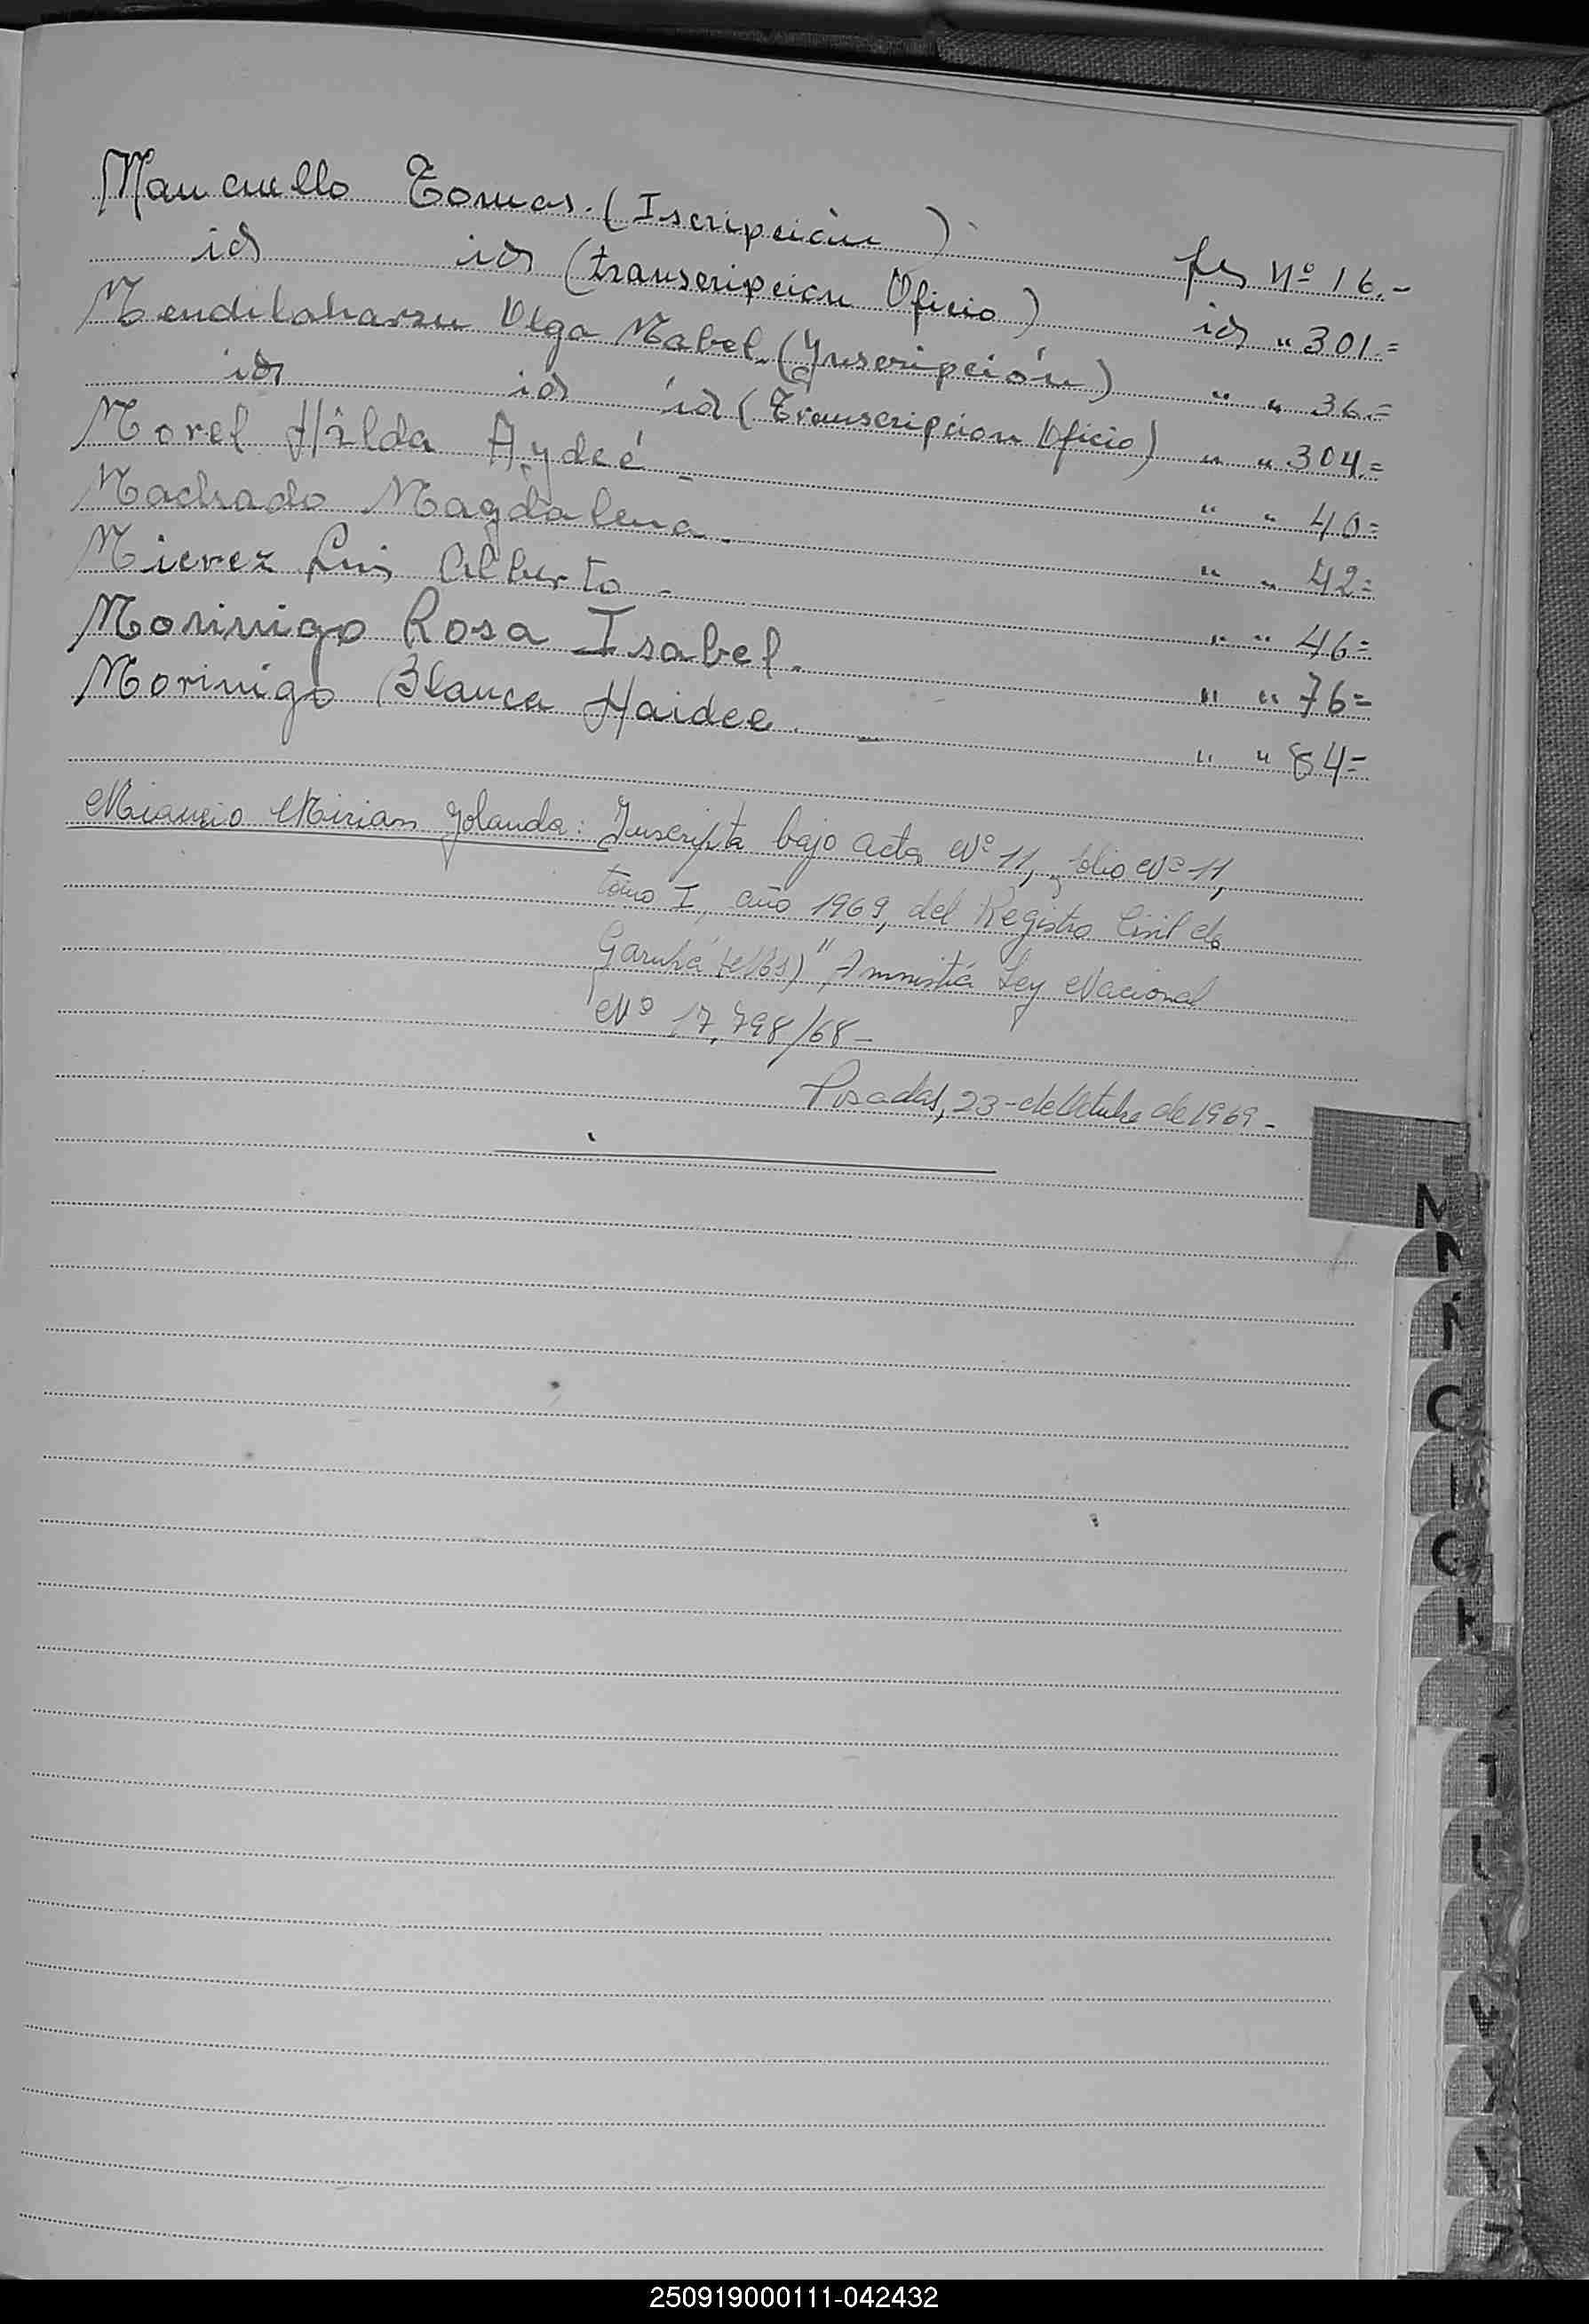 Mancuello Tomas. (Iscripción) fs Nº 16.-
id id (transcripcion Oficio) id " 301.=
Mendilaharzu Olga Mabel. (Inscripción) " " 36.=
id id id (Transcripcion Oficio) " " 304.=
Morel Hilda Aydeé - " " 40=
Machado Magdalena. " " 42=
Mierez Luis Alberto - " " 46=
Morinigo Rosa Isabel. " " 76=
Morinigo Blanca Haidee. - " " 84=
Mirian Yolanda: Inscripta bajo acta Nº 11, folio Nº 11,
tomo I, año 1969, del Registro Civil de
Garupá "Amnistía Ley Nacional
Nº 17.798/68-
Posadas, 23-de Octubre de 1969-
M
N
Ñ
O
Q
T
U
V
X
Y
Z
250919000111-042432